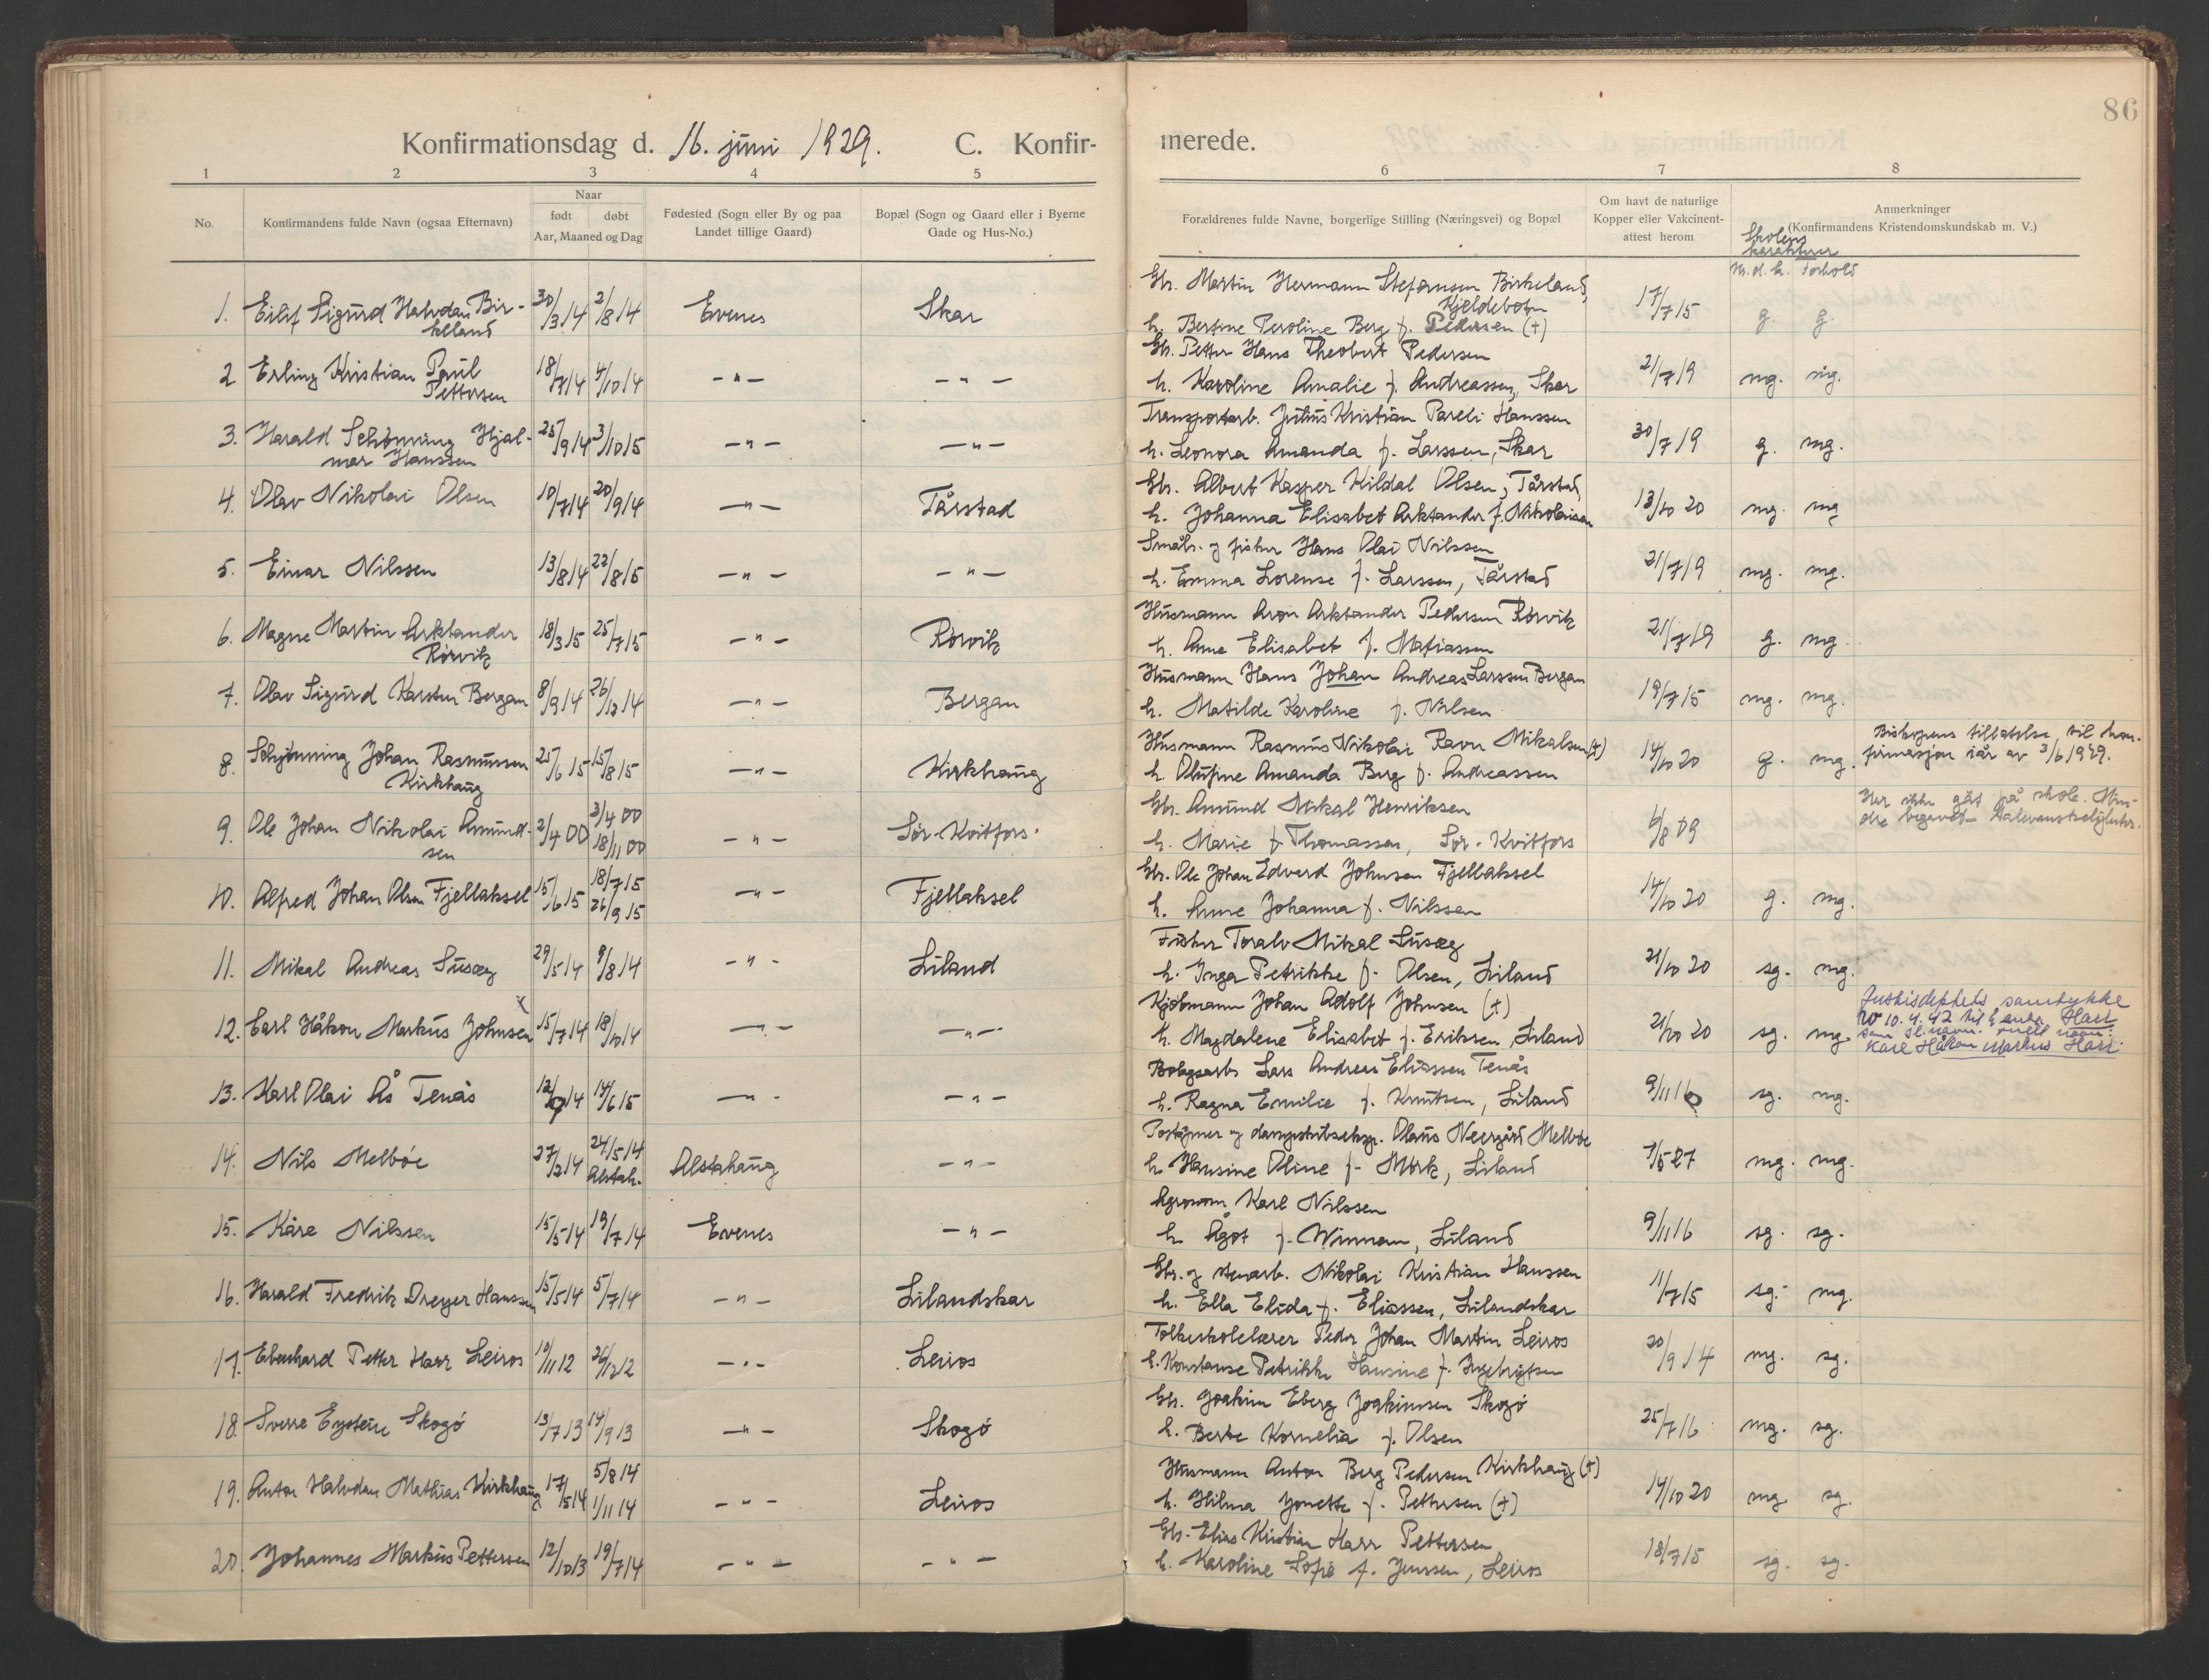 86
Konfirmationsdag d. 16. juni 1929. C. Konfir-
merede.
1 2 3 4 5
6 7 8
No. Konfirmandens fulde Navn (ogsaa Efternavn)
Naar
født døbt
Aar, Maaned og Dag
Fødested (Sogn eller By og paa
Landet tillige Gaard)
Bopæl (Sogn og Gaard eller i Byerne
Gade og Hus-No.)
Forældrenes fulde Navne, borgerlige Stilling (Næringsvei) og Bopæl
Om havt de naturlige
Kopper eller Vakcinent-
attest herom
Anmerkninger
(Konfirmandens Kristendomskundskab m. V.)
Skolens
karakterer
Forhold
1. Eilif Sigurd Halvdan Bir- 30/3 14 2/8 14 Evenes Skar
keland
Gbr. Martin Hermann Stefansen Birkeland,
Kjeldebotn 17/7 15 g. g.
h. Bertine Peroline Berg f. Pedersen (+)
2 Erling Kristian Paul 18/7 14 4/10 14 -"- -"-
Pettersen
Gbr. Petter Hans Theobert Pedersen
h. Karoline Amalie f. Andreassen, Skar 21/7 19 mg. mg.
3. Harald Schønning Hjal- 25/9 14 3/10 15 -"- -"-
mar Hanssen
Transportarb. Julius Kristian Pareli Hanssen
h. Leonora Amanda f. Larssen, Skar 30/7 19 g. mg.
4. Olav Nikolai Olsen 10/7 14 20/9 14 -"- Tårstad
Gbr. Albert Kasper Kildal Olsen, Tårstad,
h. Johanna Elisabet Arktander f. Nikolaisen 13/10 20 mg. mg
5. Einar Nilssen 13/8 14 22/8 15 -"- -"-
Småbr. og fisker Hans Olai Nilssen
h. Emma Lorense f. Larssen, Tårstad 21/7 19 mg. mg.
6. Magne Martin Arktander 18/3 15 25/7 15 -"- Rørvik
Rørvik
Husmann Aron Arktander Pedersen Rørvik
h. Anne Elisabet f. Matiassen 21/7 19 g. mg
7. Olav Sigurd Karsten Bergan 8/9 14 26/12 14 -"- Bergan
Husmann Hans Johan Andreas Larssen Bergan
h. Matilde Karoline f. Nilsen 19/7 15 mg. mg.
8. Schjønning Johan Rasmussen 25/6 15 15/8 15 -"- Kirkhaug
Kirkhaug
Husmann Rasmus Nikolai Ravn Mikalsen (+)
h. Olufine Amanda Berg f. Andreassen 14/10 20 g. mg.
Biskopens tillatelse til kon-
firmasjon iår av 3/6 1929.
9. Ole Johan Nikolai Amund- 2/4 00 3/4 00 18/11 00 -"- Sør-Kvitfors.
sen
Gbr. Amund Mikal Henriksen
h. Marie f. Thomassen, Sør-Kvitfors 6/8 09
Har ikke gåt på skole. Min-
dre begavet.
10. Alfred Johan Olsen Fjellaksel 15/6 15 18/7 15 26/9 15 -"- Fjellaksel
Gbr. Ole Johan Edvard Johnsen Fjellaksel
h. Anne Johanna f. Nilssen 14/10 20 g. mg.
11. Mikal Andreas Susæg 29/5 14 9/8 14 -"- Liland
Fisker Toralv Mikal Susæg
h. Inga Petrikke f. Olsen, Liland 21/10 20 sg. mg.
12. Carl Håkon Markus Johnsen x 15/7 14 18/10 14 -"- -"-
Kjøbmann Johan Adolf Johnsen (+)
h. Magdalene Elisabet f. Eriksen, Liland 21/10 20 sg. mg.
Justisdeptets samtykke
av 10.4.42 til å anta Harr
som sl.navn. Fullt navn:
Karl Håkon Markus Harr.
13. Karl Olai Ås Tenås 12/9 14 14/6 15 -"- -"-
Bolagsarb. Lars Andreas Eliassen Tenås
h. Ragna Emilie f. Knutsen, Liland 9/11 16 sg. mg.
14. Nils Melbøe 27/2 14 24/5 14 Alstahaug -"-
Alstah.
Poståpner og dampskibseksp. Olaus Neergård Melbøe
h. Hansine Oline f. Mørk, Liland 7/5 27 mg. mg.
15. Kåre Nilssen 15/5 14 19/7 14 Evenes -"-
Agronom Karl Nilssen
h. Ågot f. Winman, Liland 9/11 16 sg. sg.
16. Harald Fredrik Dreyer Hanssen 15/5 14 5/7 14 -"- Lilandskar
Gbr. og stenarb. Nikolai Kristian Hanssen
h. Ella Elida f. Eliassen, Lilandskar 11/7 15 sg. mg.
17. Ebenhard Petter Harr Leiros 10/11 12 26/12 12 -"- Leiros
Folkeskolelærer Peder Johan Martin Leiros
h. Konstanse Petrikke Hansine f. Ingebrigtsen 20/9 14 mg. sg.
18. Sverre Eystein Skogø 13/7 13 14/9 13 -"- Skogø
Gbr. Joakim Eberg Joakimsen Skogø
h. Berte Kornelia f. Olsen 25/7 16 mg. sg.
19. Anton Halvdan Mathias Kirkhaug 17/5 14 5/8 14 1/11 14 -"- Leiros
Husmann Anton Berg Pedersen Kirkhaug (+)
h. Hilma Jonette f. Pettersen (+) 14/10 20 mg sg.
20. Johannes Markus Pettersen 12/10 13 19/7 14 -"- -"-
Gbr. Elias Kristian Harr Pettersen
h. Karoline Sofie f. Jenssen, Leiros 18/7 15 sg. sg.